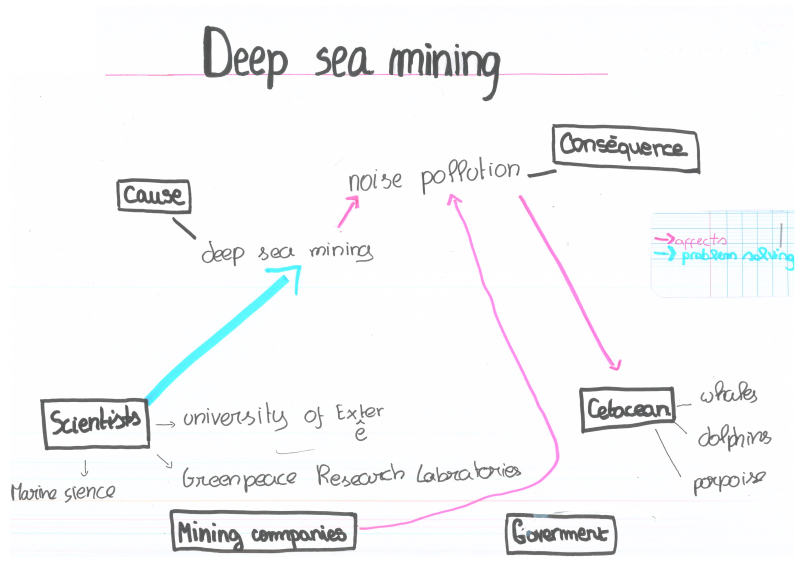 Deep sea mining
Conséquence
noise pollution
Cause
deep sea mining
affects
problem solving
Scientists
university of Exter
ê
Marine sience
Greenpeace Research Laboratories
Cetacean
whales
dolphins
porpoise
Mining companies
Goverment